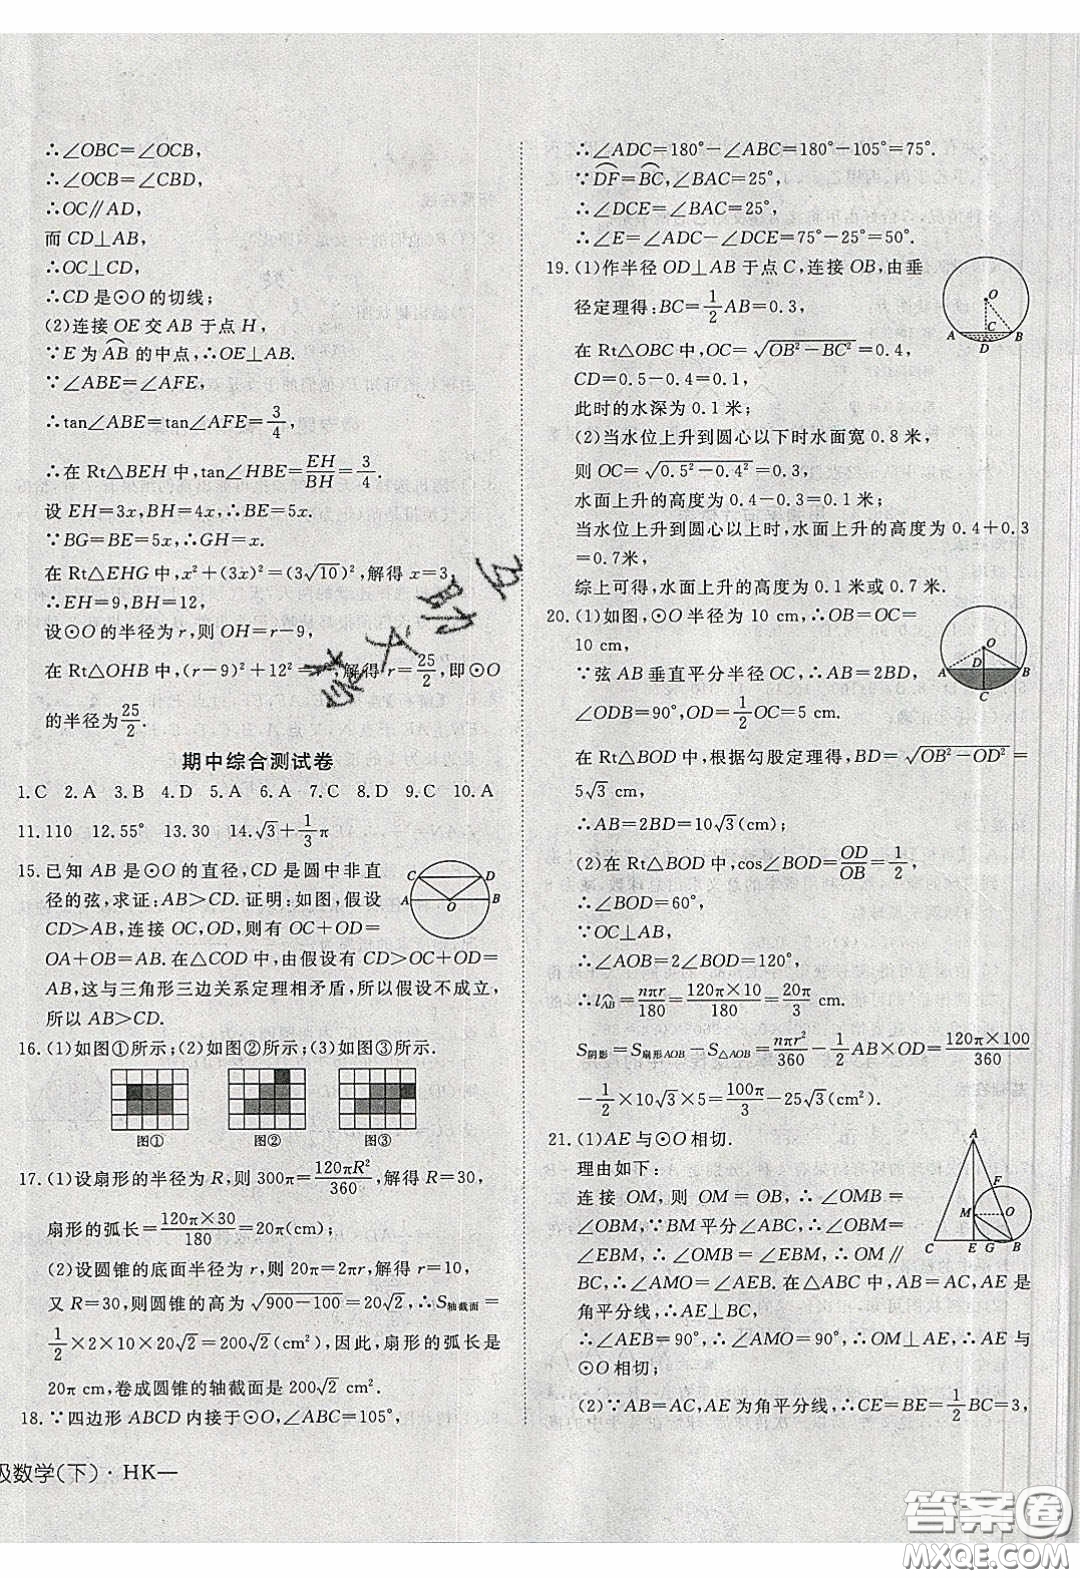 ∴∠OBC=∠OCB,
∴∠OCB=∠CBD,
∴OC∥AD,
而 CD⊥AB,
∴OC⊥CD,
∴CD 是⊙O 的切线;
(2)连接 OE 交 AB 于点 H,
∵E 为 AB⌢ 的中点,∴OE⊥AB.
∵∠ABE=∠AFE,
∴tan∠ABE=tan∠AFE=3/4,
∴在 Rt△BEH 中,tan∠HBE=EH/BH=3/4.
设 EH=3x,BH=4x,∴BE=5x.
∵BG=BE=5x,∴GH=x.
在 Rt△EHG 中,x²+(3x)²=(3√10)²,解得 x=3,
∴EH=9,BH=12,
设⊙O 的半径为 r,则 OH=r-9,
在 Rt△OHB 中,(r-9)²+12²= ,解得 r=25/2,即⊙O
的半径为25/2.
期中综合测试卷
1.C 2.A 3.B 4.D 5.A 6.A 7.C 8.D 9.C 10.A
11.110 12.55° 13.30 14.√3+1/3π
15.已知 AB 是⊙O 的直径,CD 是圆中非直
径的弦,求证:AB>CD.证明:如图,假设
CD>AB,连接 OC,OD,则有 OC+OD=
OA+OB=AB.在△COD 中,由假设有 CD>OC+OD=
AB,这与三角形三边关系定理相矛盾,所以假设不成立,
所以 AB>CD.
C D
A O B
16.(1)如图①所示;(2)如图②所示;(3)如图③所示.
图① 图② 图③
17.(1)设扇形的半径为 R,则 300π=120πR²/360,解得 R=30,
扇形的弧长=120π×30/180=20π(cm);
(2)设圆锥的底面半径为 r,则 20π=2πr,解得 r=10,
又 R=30,则圆锥的高为√900-100=20√2,∴S轴截面=
1/2×2×10×20√2=200√2(cm²),因此,扇形的弧长是
20π cm,卷成圆锥的轴截面是 200√2 cm².
18.∵四边形 ABCD 内接于⊙O,∠ABC=105°,
级数学(下)·HK—
∴∠ADC=180°-∠ABC=180°-105°=75°.
∵DF⌢=BC⌢,∠BAC=25°,
∴∠DCE=∠BAC=25°,
∴∠E=∠ADC-∠DCE=75°-25°=50°.
19.(1)作半径 OD⊥AB 于点 C,连接 OB,由垂
径定理得:BC=1/2AB=0.3,
在 Rt△OBC 中,OC=√OB²-BC²=0.4,
CD=0.5-0.4=0.1,
此时的水深为 0.1 米;
O
A C B
D
(2)当水位上升到圆心以下时水面宽 0.8 米,
则 OC=√0.5²-0.4²=0.3,
水面上升的高度为 0.4-0.3=0.1 米;
当水位上升到圆心以上时,水面上升的高度为 0.4+0.3
=0.7米,
综上可得,水面上升的高度为 0.1 米或 0.7 米.
20.(1)如图,⊙O 半径为 10 cm,∴OB=OC=
10 cm,
∵弦 AB 垂直平分半径 OC,∴AB=2BD,
∠ODB=90°,OD=1/2OC=5 cm,
O
A D B
C
在 Rt△OBD 中,根据勾股定理得,BD=√OB²-OD²=
5√3 cm,
∴AB=2BD=10√3(cm);
(2)在 Rt△BOD 中,cos∠BOD=OD/OB=1/2,
∴∠BOD=60°,
∵OC⊥AB,
∴∠AOB=2∠BOD=120°,
∴lAB⌢=nπr/180=120π×10/180=20π/3 cm.
S阴影=S扇形AOB-S△AOB=nπr²/360-1/2AB×OD=120π×100/360
-1/2×10√3×5=100π/3-25√3(cm²).
21.(1)AE 与⊙O 相切.
理由如下:
连接 OM,则 OM=OB,∴∠OMB=
∠OBM,∵BM 平分∠ABC,∴∠OBM=
∠EBM,∴∠OMB=∠EBM,∴OM∥
BC,∴∠AMO=∠AEB.在△ABC 中,AB=AC,AE 是
角平分线,∴AE⊥BC,
∴∠AEB=90°,∴∠AMO=90°,∴OM⊥AE,∴AE 与
⊙O 相切;
A
F
M O
C E G B
(2)∵AB=AC,AE 为角平分线,∴CE=BE=1/2BC=3,
答案卷
MXQE.COM